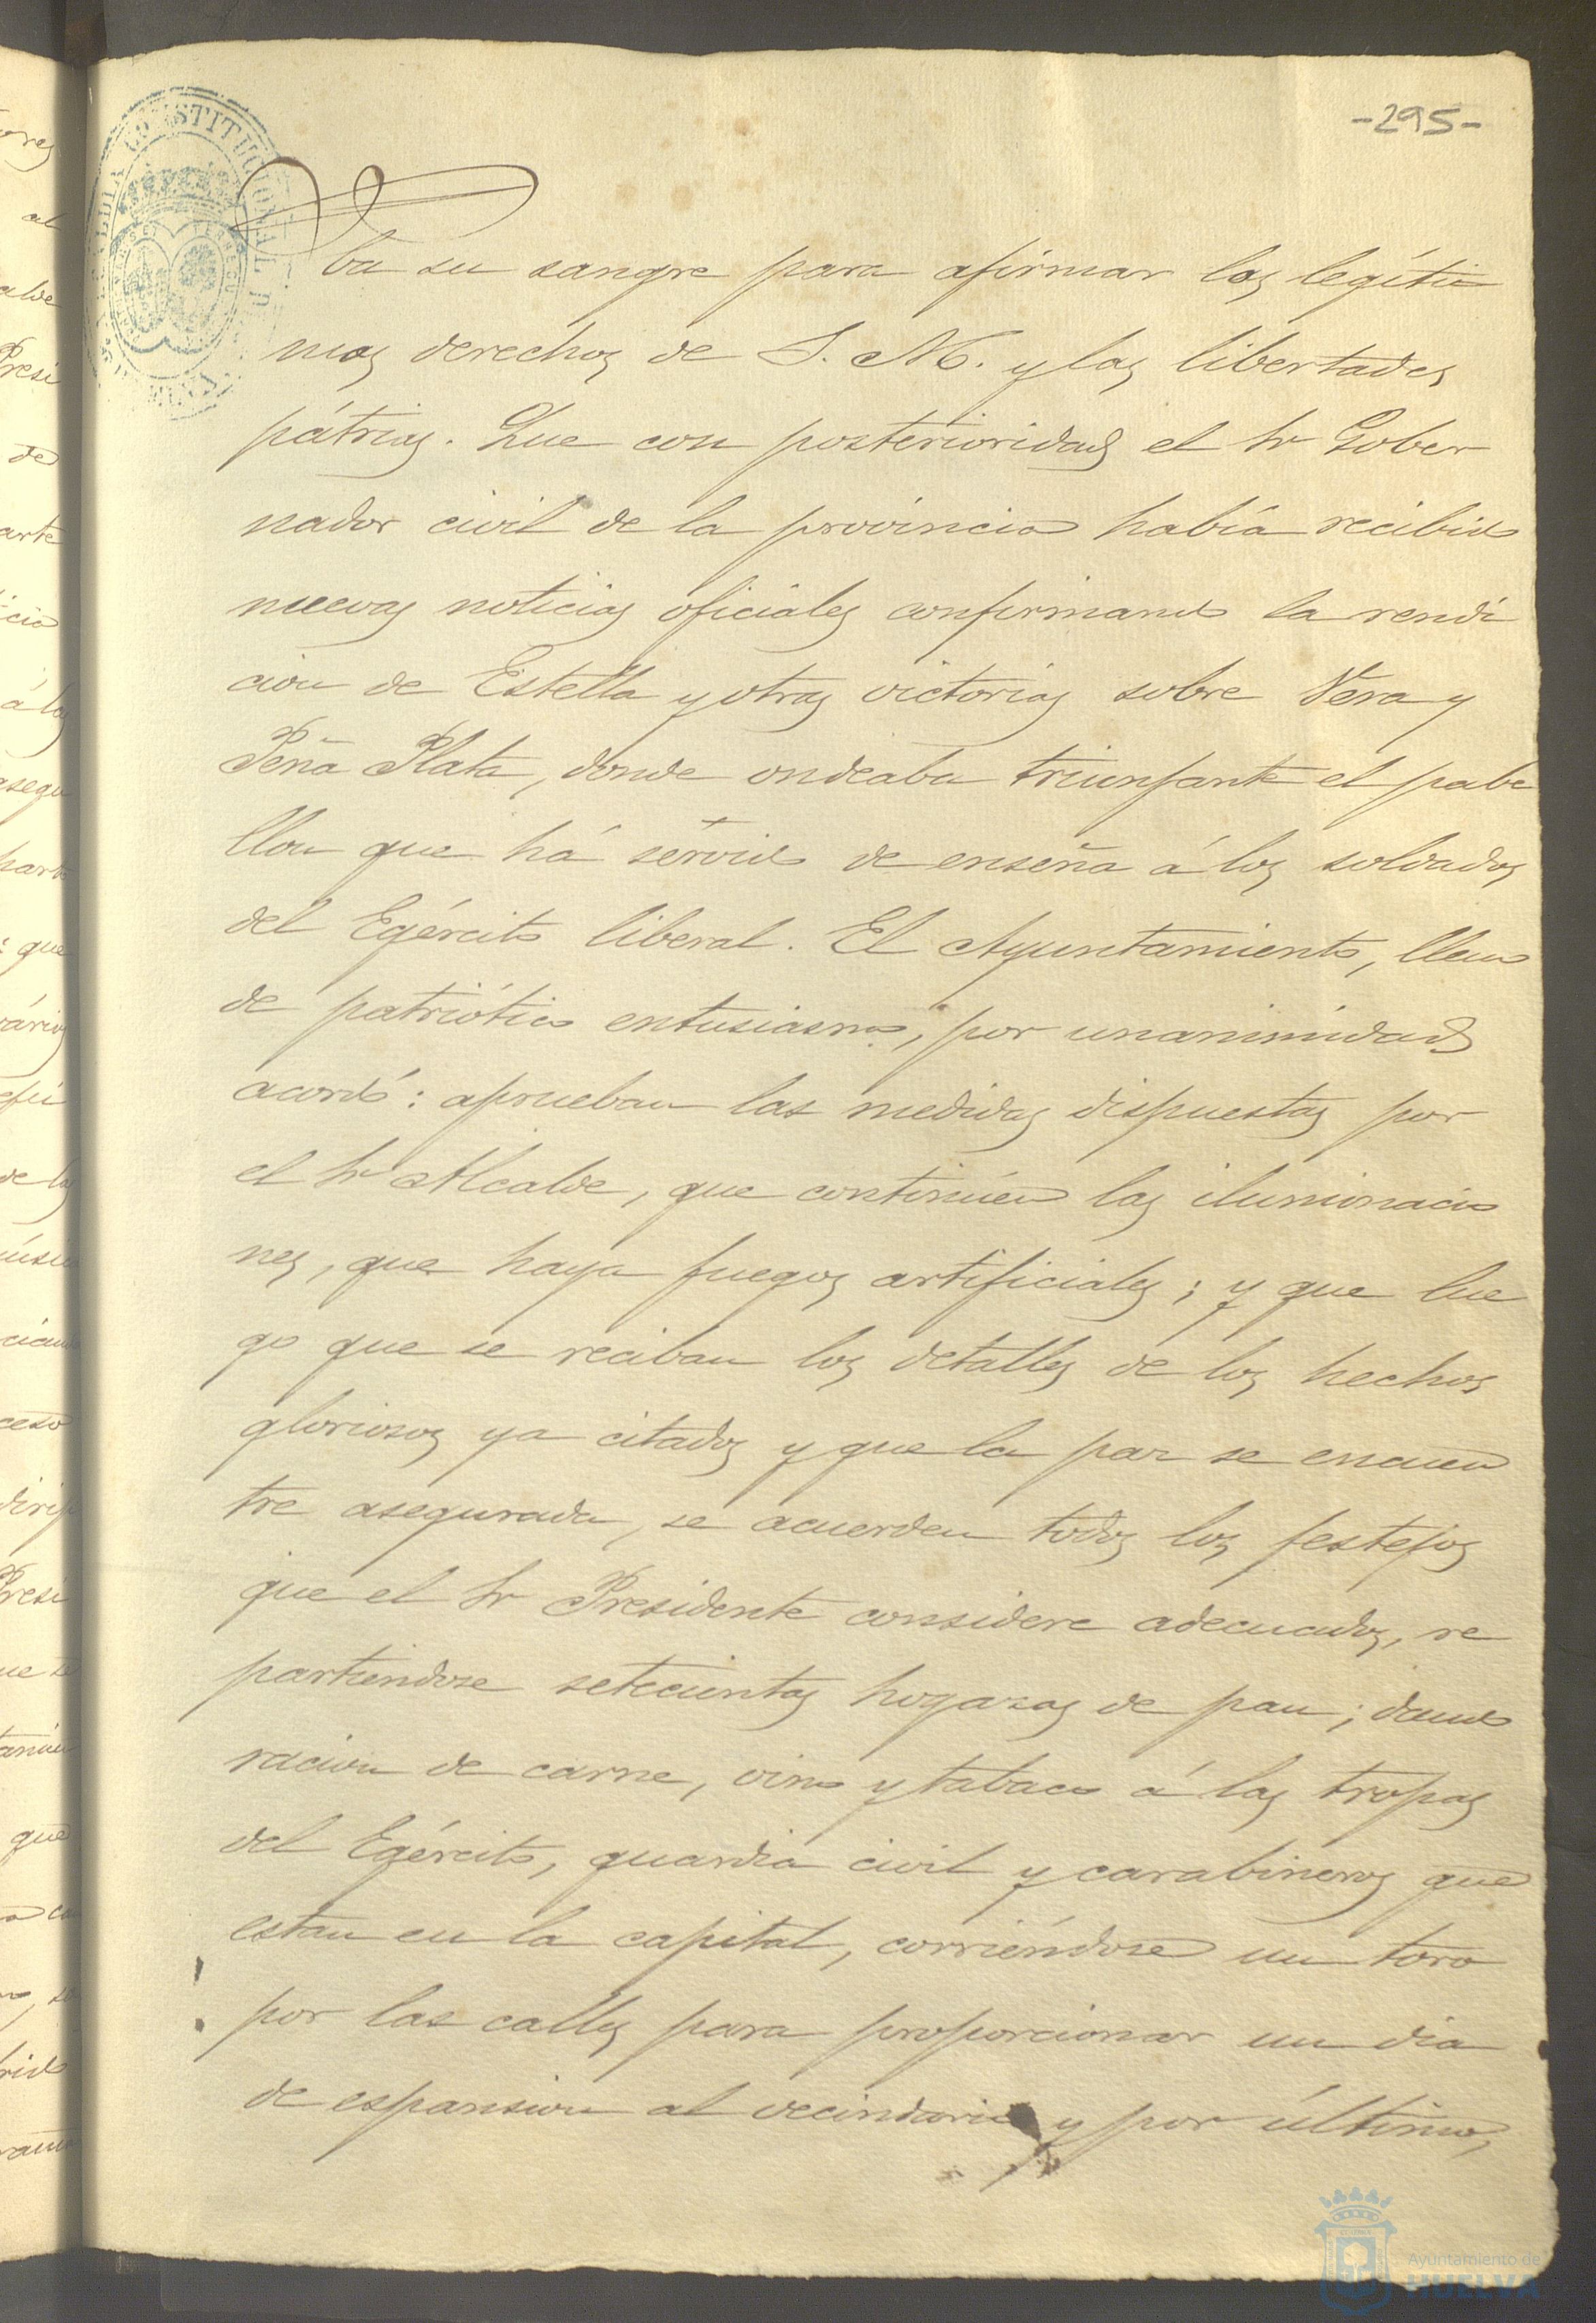 -295-
ALCALDIA CONSTITUCIONAL
ba su sangre para afirmar los legíti
mos derechos de S. M. y las libertades
pátrias. Que con posterioridad el Sr Gober
nador civil de la provincia había recibido
nuevas noticias oficiales confirmando la rendi
cion de Estella y otras victorias sobre Vera y
Peña Plata, donde ondeaba triunfante el pabe
llon que há servido de enseña á los soldados
del Egército liberal. El Ayuntamiento, lleno
de patriótico entusiasmo, por unanimidad
acordó: aprueban las medidas dispuestas por
el Sr Alcalde, que continúen las iluminacio
nes, que haya fuegos artificiales; y que lue
go que se reciban los detalles de los hechos
gloriosos ya citados y que la paz se encuen
tre asegurada, se acuerden todos los festejos
que el Sr Presidente considere adecuados, re
partiendose setecientas hogazas de pan; dando
racion de carne, vino y tabaco á las tropas
del Egército, guardia civil y carabineros que
estan en la capital, corriéndose un toro
por las calles para proporcionar un dia
de espansion al vecindario y por último,
Ayuntamiento de
HUELVA